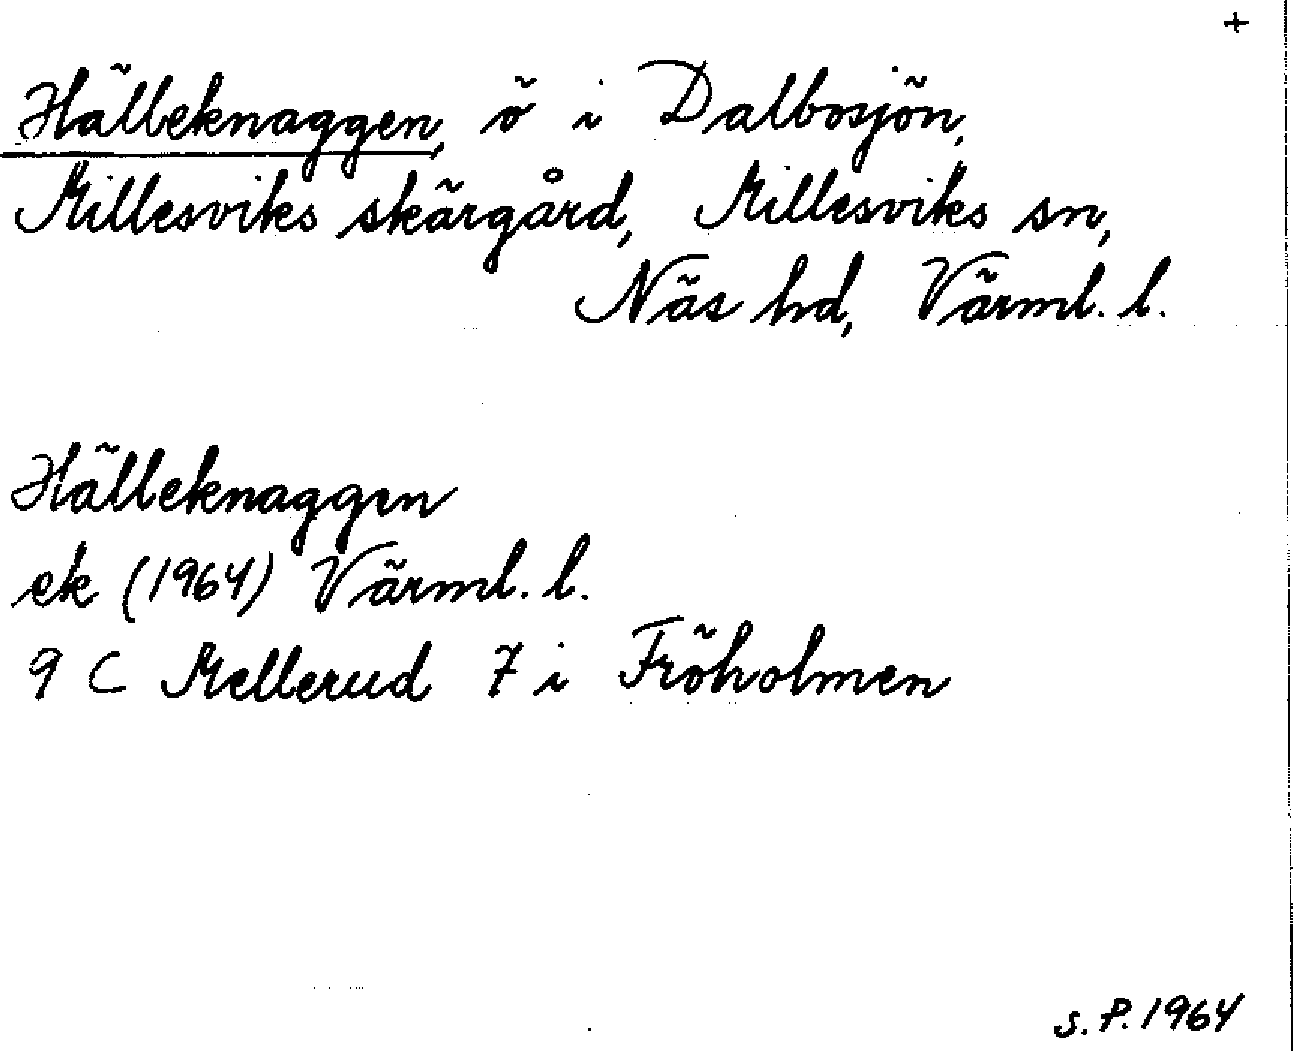 +
Hälleknaggen, ö i Dalbosjön,
Millesviks skärgård, Millesviks sn,
Näs hd, Värml. l.
Hälleknaggen
ek (1964) Värml. l.
9 C Mellerud 7 i Fröholmen
S. P. 1964